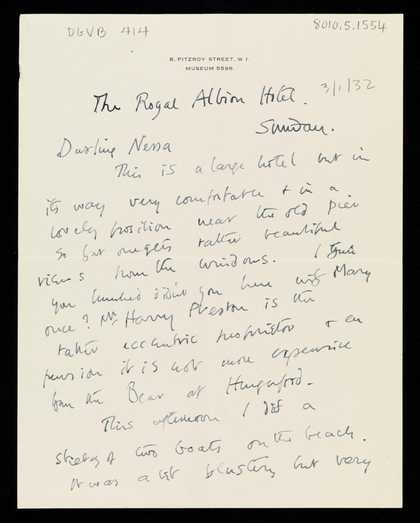 DGVB 414
8010.5.1554
8, FITZROY STREET, W.1.
MUSEUM 5596.
3/1/32
The Royal Albion Hotel.
Sunday.
Darling Nessa
This is a large hotel but in
its way very comfortable & in a
lovely position near the old pier
So that one gets rather beautiful
views from the windows. I think
you lunched didn't you here with Mary
once? Mr Harry Preston is the
rather eccentric proprietor & en
pension it is not more expensive
than the Bear at Hungerford.
This afternoon I did a
sketch of two boats on the beach.
It was a bit blustery but very